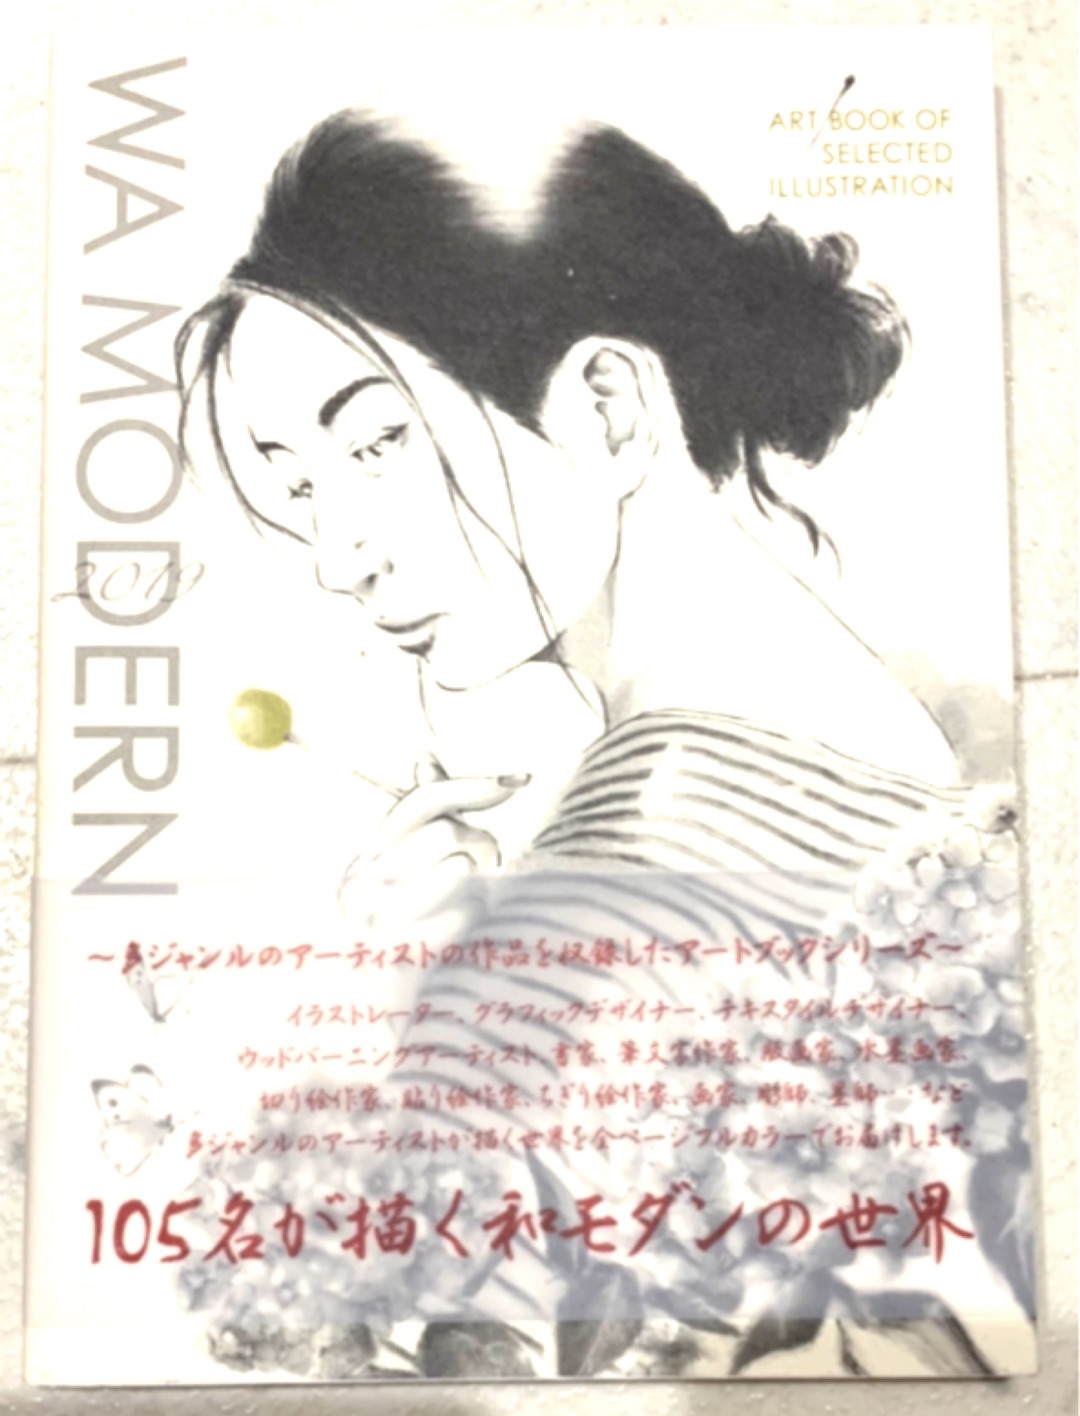 WA MODERN
2019
ART BOOK OF
SELECTED
ILLUSTRATION
～多ジャンルのアーティストの作品を収録したアートブックシリーズ～
イラストレーター、グラフィックデザイナー、テキスタイルデザイナー、
ウッドバーニングアーティスト、書家、筆文字作家、版画家、水墨画家、
切り絵作家、貼り絵作家、ちぎり絵作家、画家、彫師、墨師…など
多ジャンルのアーティストが描く世界を全ページフルカラーでお届けします。
105名が描く和モダンの世界